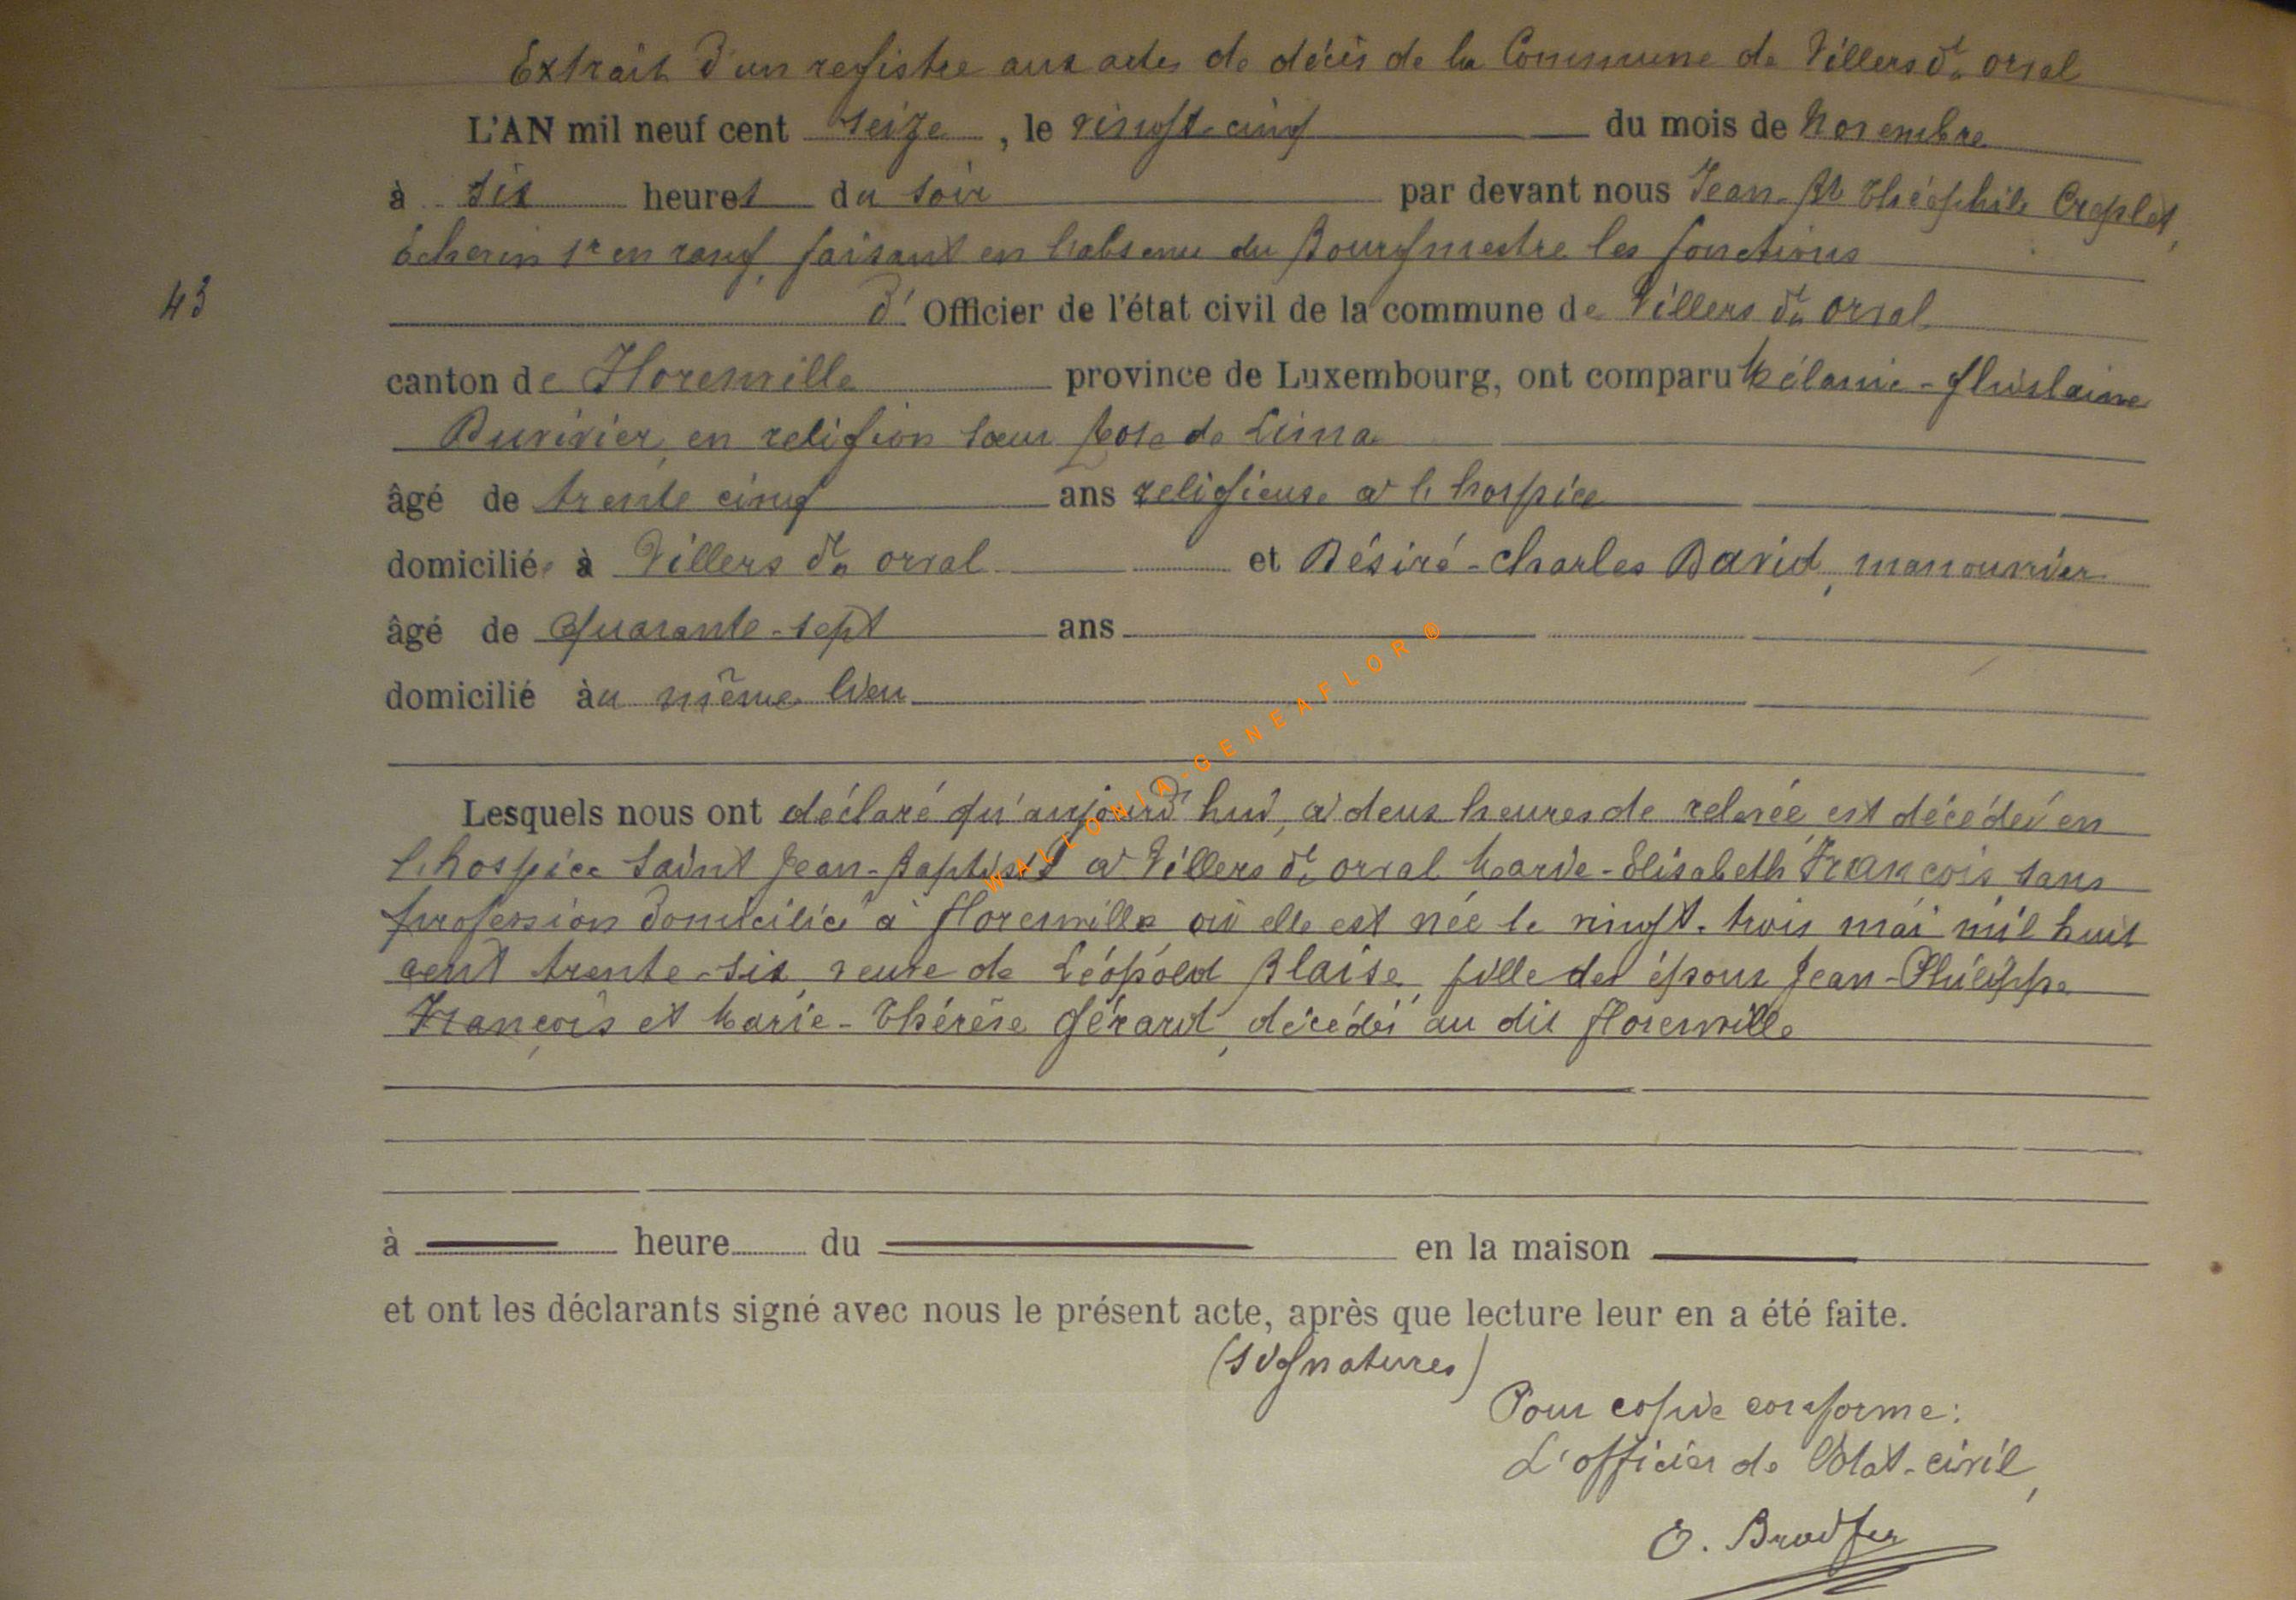 Extrait d'un registre aux actes de décès de la Commune de Villers dt orval
L'AN mil neuf cent seize, le vingt-cinq du mois de Novembre
à six heures du soir par devant nous Jean-Bte Théophile Creplet,
Echevin 1r en rang, faisant en l'absence du Bourgmestre les fonctions
43
d'Officier de l'état civil de la commune de Villers dt orval
canton de Florenville province de Luxembourg, ont comparu Mélanie-ghislaine
Duvivier, en religion soeur Rose de Lima
âgé de trente cinq ans religieuse à l'hospice
domiciliée à Villers dt orval et Désiré-Charles David, manouvrier
âgé de quarante-sept ans
domicilié au même lieu
Lesquels nous ont déclaré qu'aujourd'hui, à deux heures de relevée, est décédée en
l'hospice Saint Jean-Baptiste à Villers dt orval Marie-Elisabeth François sans
profession domiciliée à florenville où elle est née le vingt-trois mai mil huit
cent trente-six, veuve de Léopold Blaise, fille des époux Jean-Philippe
François et Marie-Thérèse Gérard, décédés au dit florenville
à heure du en la maison
et ont les déclarants signé avec nous le présent acte, après que lecture leur en a été faite.
(signatures)
Pour copie conforme:
L'officier de l'Etat-civil,
WALLONIA-GENEAFLOR ©